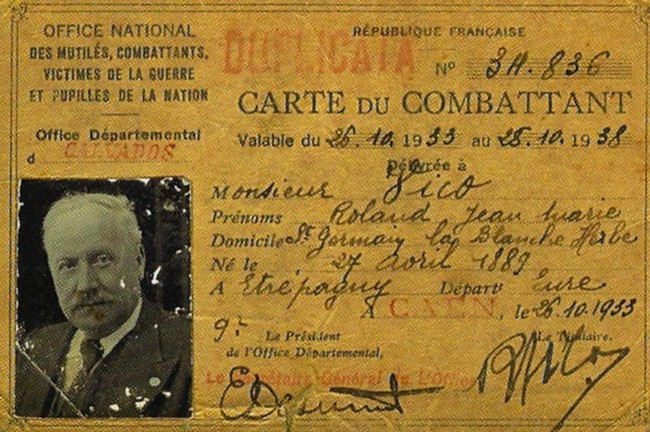 OFFICE NATIONAL
DES MUTILÉS, COMBATTANTS,
VICTIMES DE LA GUERRE
ET PUPILLES DE LA NATION
Office Départemental
d CALVADOS
DUPLICATA
RÉPUBLIQUE FRANÇAISE
N° 34.836
CARTE DU COMBATTANT
Valable du 26.10.1933 au 25.10.1938
Délivrée à
Monsieur Vico
Prénoms Roland Jean Marie
Domicile St Germain la Blanche Herbe
Né le 27 avril 1889
A Etrépagny Départt Eure
A CAEN, le 26.10.1933
Le Président
de l'Office Départemental,
Le Titulaire.
Le Secrétaire Général de l'Office